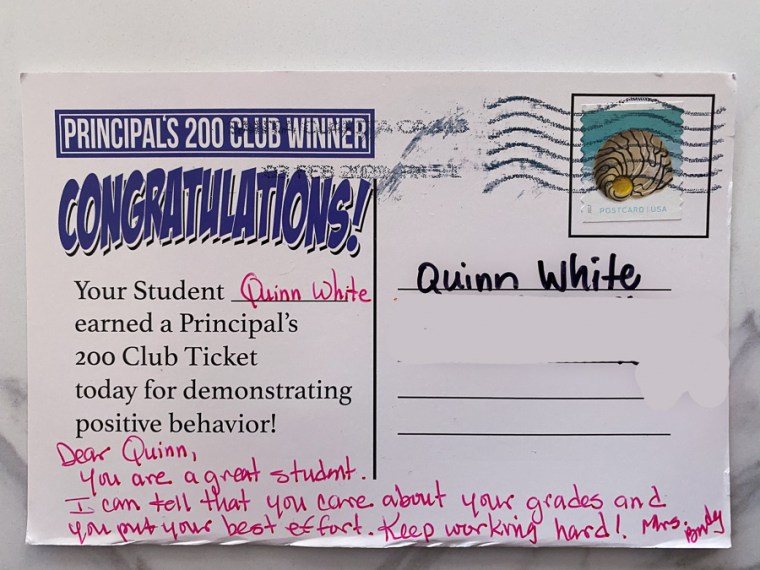 PRINCIPAL'S 200 CLUB WINNER
CONGRATULATIONS!
Your Student Quinn White
earned a Principal's
200 Club Ticket
today for demonstrating
positive behavior!
Dear Quinn,
you are a great student.
I can tell that you care about your grades and
you put your best effort. Keep working hard! Mrs.
POSTCARD | USA
Quinn White